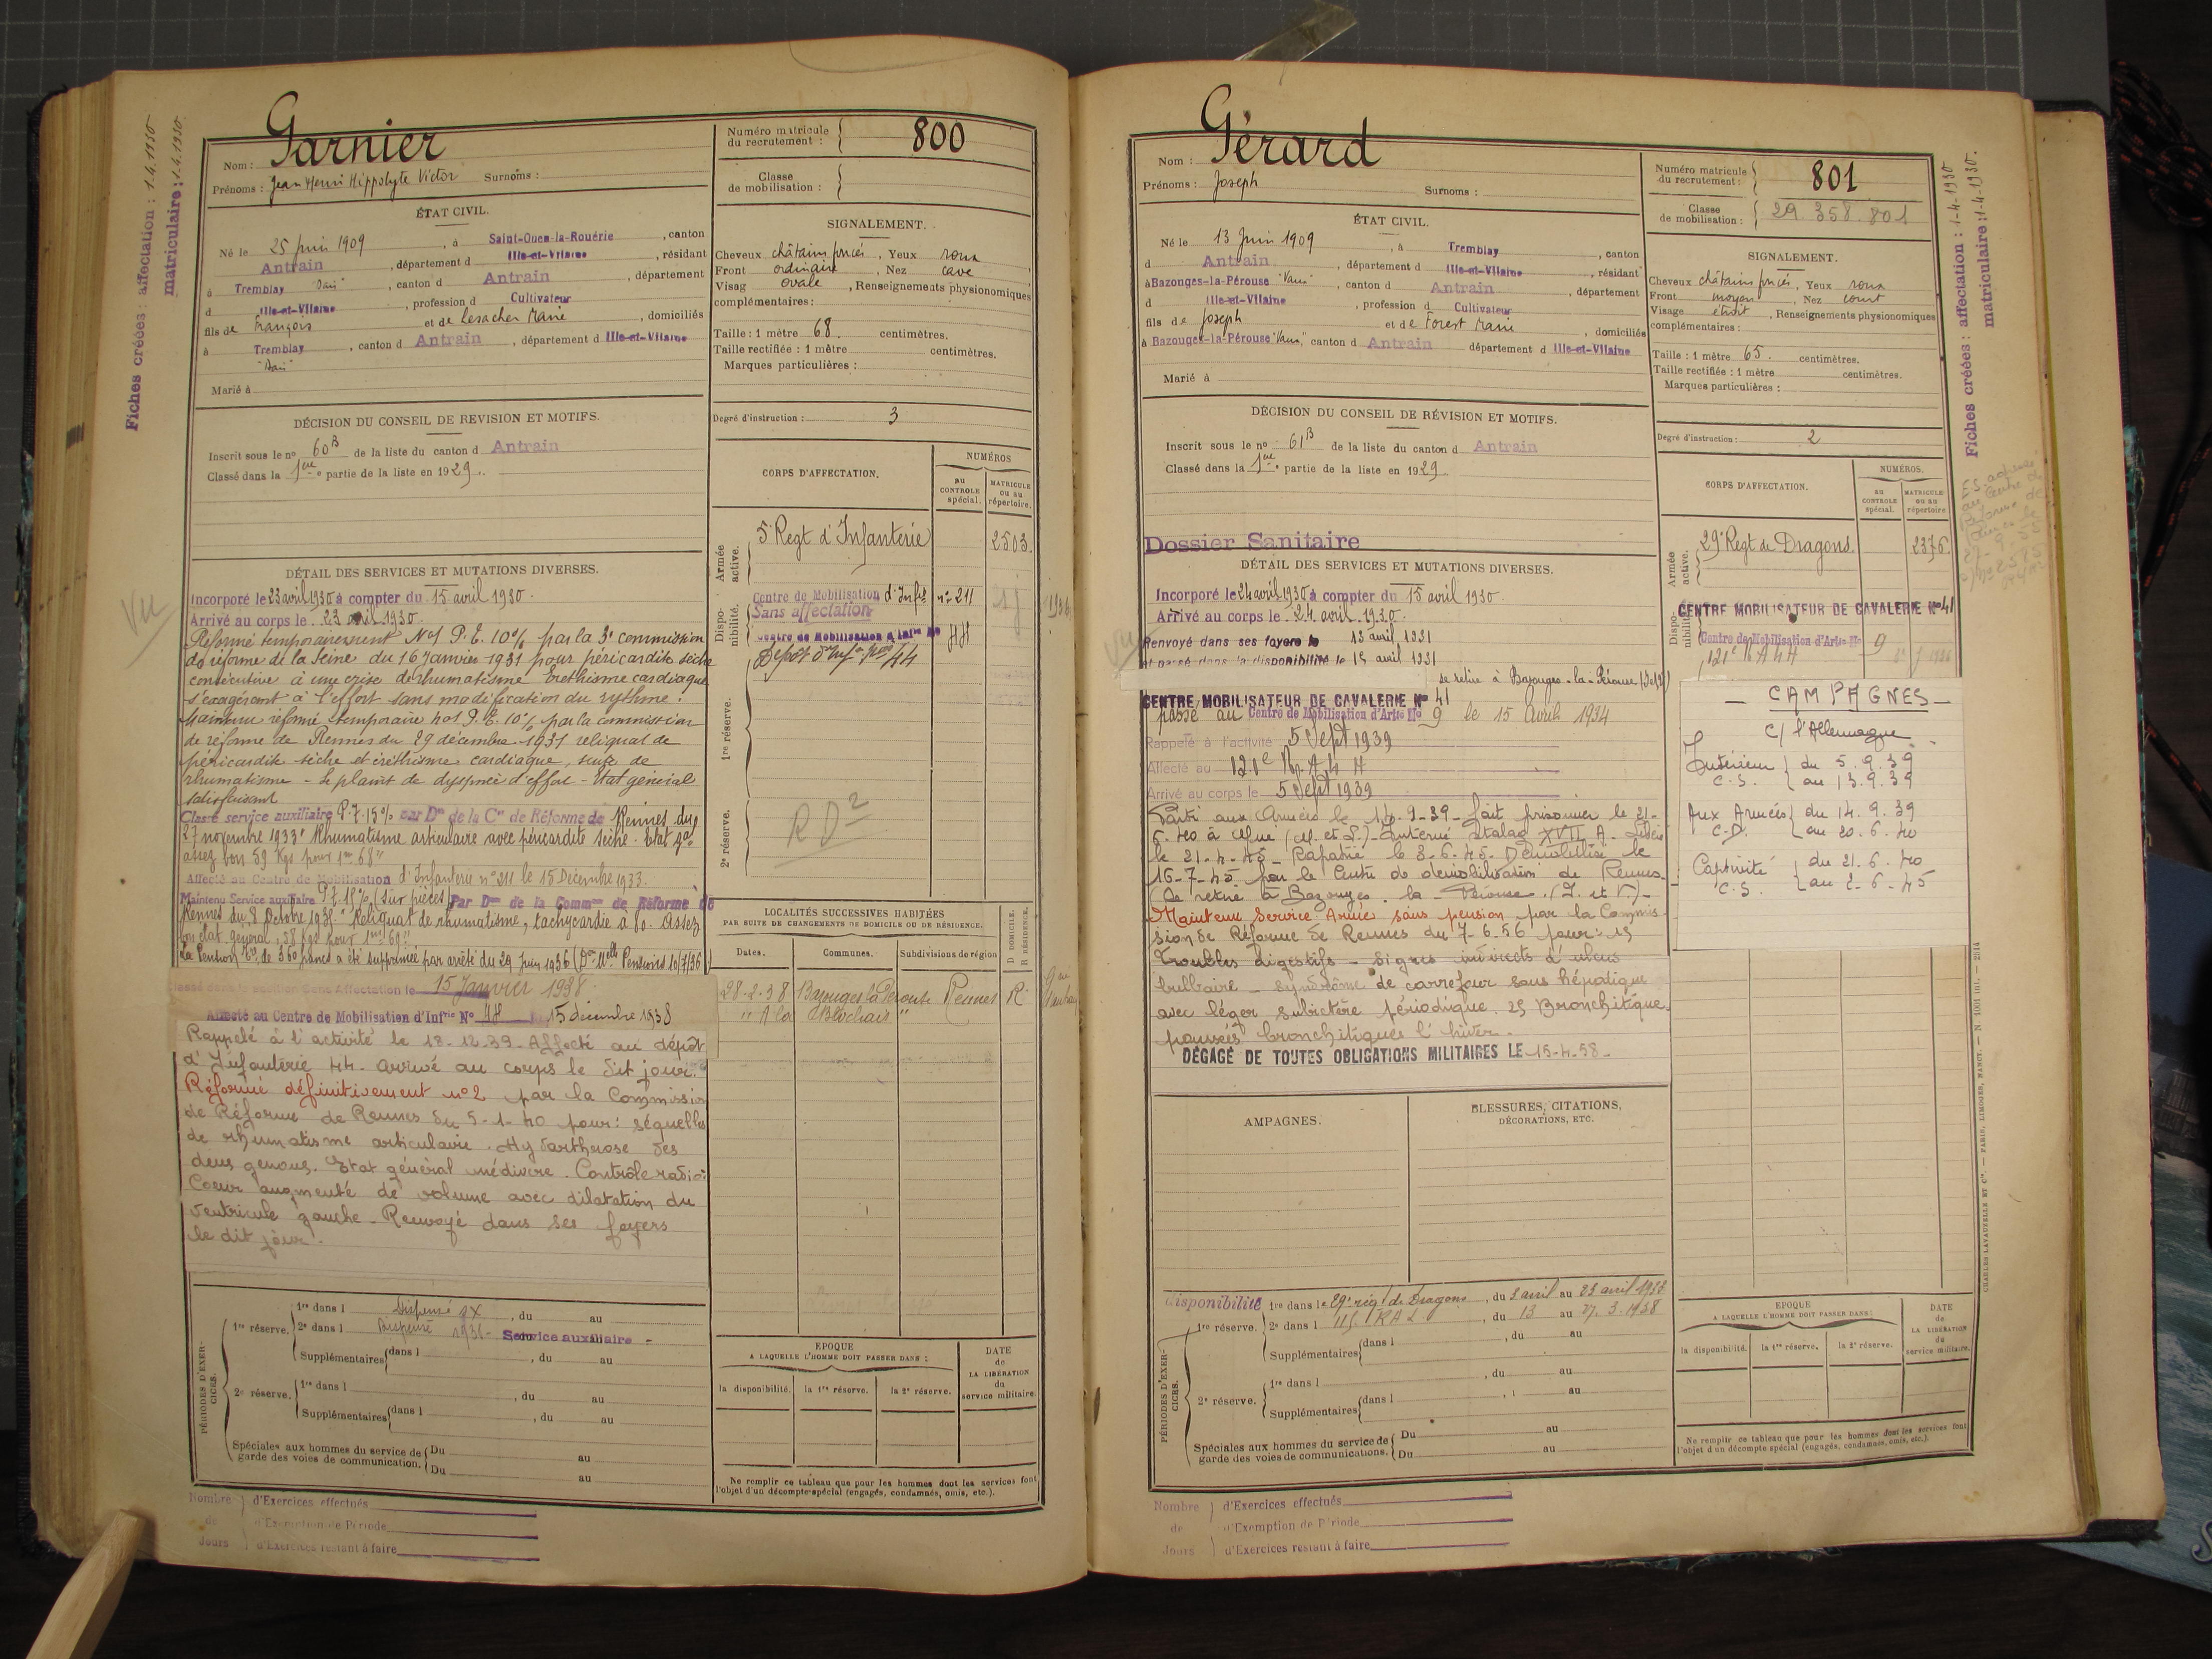 Fiches créées : affectation : 1.4.1930
matriculaire : 1.4.1930
Nom : Garnier
Prénoms : Jean Henri Hippolyte Victor Surnoms :
Numéro matricule du recrutement : 800
Classe de mobilisation :
ÉTAT CIVIL.
Né le 25 juin 1909, à Saint-Ouen-la-Rouërie, canton
Antrain, département d Ille-et-Vilaine, résidant
à Tremblay, canton d Antrain, département
d Ille-et-Vilaine, profession d Cultivateur
fils de François et de Lesacher Marie, domiciliés
à Tremblay, canton d Antrain, département d Ille-et-Vilaine
Marié à
SIGNALEMENT.
Cheveux châtains foncés, Yeux roux
Front ordinaire, Nez cave
Visag ovale, Renseignements physionomiques
complémentaires :
Taille : 1 mètre 68 centimètres.
Taille rectifiée : 1 mètre centimètres.
Marques particulières :
Degré d'instruction : 3
DÉCISION DU CONSEIL DE REVISION ET MOTIFS.
Inscrit sous le no 60 B de la liste du canton d Antrain
Classé dans la 1ère partie de la liste en 1929.
DÉTAIL DES SERVICES ET MUTATIONS DIVERSES.
Incorporé le 23 avril 1930 à compter du 15 avril 1930.
Arrivé au corps le 23 avril 1930.
Réformé temporairement No1 P.E. 10% par la 3e commission
de réforme de la Seine du 16 Janvier 1931 pour péricardite sèche
consécutive à une crise de rhumatisme. Eréthisme cardiaque
s'exagérant à l'effort sans modification du rythme.
Maintenu réformé temporaire no1 P.E. 10% par la commission
de réforme de Rennes du 29 décembre 1931 reliquat de
péricardite sèche et éréthisme cardiaque, suite de
rhumatisme - se plaint de dyspnée d'effort - Etat général
satisfaisant
Classé service auxiliaire P.T. 15% par Don de la Con de Réforme de Rennes du
27 novembre 1933 Rhumatisme articulaire avec péricardite sèche. Etat gal
assez bon 59 Kgs pour 1m 68
Affecté au Centre de Mobilisation d'Infanterie no 211 le 15 Décembre 1933.
Maintenu Service auxiliaire P.T. 15% (sur pièces) Par Don de la Common de Réforme de
Rennes du 8 Octobre 1935 Reliquat de rhumatisme, tachycardie à 60. Assez
bon état général, 58 Kgs pour 1m 69
La Pension de 360 francs a été supprimée par arrêté du 29 Juin 1936 (Pensions 10/7/36)
Sans Affectation le 15 Janvier 1938
Affecté au Centre de Mobilisation d'Infrie No 44 15 décembre 1938
Rappelé à l'activité le 18-12-39. Affecté au dépôt
d'Infanterie 44. Arrivé au corps le dit jour.
Réformé définitivement no2 par la Commission
de Réforme de Rennes du 5-1-40 pour : séquelles
de rhumatisme articulaire. Hydarthrose des
deux genoux. Etat général médiocre. Contrôle radio :
Coeur augmenté de volume avec dilatation du
ventricule gauche - Renvoyé dans ses foyers
le dit jour.
CORPS D'AFFECTATION.
NUMÉROS
au CONTROLE spécial.
MATRICULE ou au répertoire.
Armée active.
5e Regt d'Infanterie 2503
Disponibilité.
Centre de Mobilisation d'Infie no 211
Sans affectation
Centre de Mobilisation d'Infrie No 44
Dépôt d'Infie no 44
1re réserve.
2e réserve.
RD2
LOCALITÉS SUCCESSIVES HABITÉES
PAR SUITE DE CHANGEMENTS DE DOMICILE OU DE RÉSIDENCE.
Dates. Communes. Subdivisions de région D DOMICILE. R RÉSIDENCE.
28-2-38 Bazouges la Pérouse Rennes R
PÉRIODES D'EXERCICES.
1re réserve. 1re dans l Dispensé, du au
2e dans l Dispensé 1936 - Service auxiliaire -
Supplémentaires dans l, du au
2e réserve. 1re dans l, du au
Supplémentaires dans l, du au
Spéciales aux hommes du service de garde des voies de communication. Du au
Du au
EPOQUE
A LAQUELLE L'HOMME DOIT PASSER DANS :
la disponibilité. la 1re réserve. la 2e réserve.
DATE de LA LIBÉRATION du service militaire.
Ne remplir ce tableau que pour les hommes dont les services font
l'objet d'un décompte spécial (engagés, condamnés, omis, etc.).
Nombre de Jours
d'Exercices effectués
d'Exemption de Période
d'Exercices restant à faire
Nom : Gérard
Prénoms : Joseph Surnoms :
Numéro matricule du recrutement : 801
Classe de mobilisation : 29.358.801
ÉTAT CIVIL.
Né le 13 Juin 1909, à Tremblay, canton
d Antrain, département d Ille-et-Vilaine, résidant
à Bazouges-la-Pérouse, canton d Antrain, département
d Ille-et-Vilaine, profession d Cultivateur
fils de Joseph et de Forest Marie, domiciliés
à Bazouges-la-Pérouse, canton d Antrain département d Ille-et-Vilaine
Marié à
SIGNALEMENT.
Cheveux châtains foncés, Yeux roux
Front moyen, Nez court
Visage étroit, Renseignements physionomiques
complémentaires :
Taille : 1 mètre 65. centimètres.
Taille rectifiée : 1 mètre centimètres.
Marques particulières :
Degré d'instruction : 2
Fiches créées : affectation : 1-4-1930
matriculaire : 1-4-1930.
DÉCISION DU CONSEIL DE RÉVISION ET MOTIFS.
Inscrit sous le no 61 B de la liste du canton d Antrain
Classé dans la 1ère partie de la liste en 1929
Dossier Sanitaire
DÉTAIL DES SERVICES ET MUTATIONS DIVERSES.
Incorporé le 24 avril 1930 à compter du 15 avril 1930.
Arrivé au corps le 24 avril 1930.
Renvoyé dans ses foyers le 13 avril 1931
et passé dans la disponibilité le 15 avril 1931
se retire à Bazouges-la-Pérouse
CENTRE MOBILISATEUR DE CAVALERIE No 41
passé au Centre de Mobilisation d'Artie No 9 le 15 Avril 1934
Rappelé à l'activité 5 Sept 1939
Affecté au 121e
Arrivé au corps le 5 Sept 1939
Parti aux Armées le 14-9-39 - fait prisonnier le 21-
6-40 à - Interné Stalag XVII A - Libéré
le 21-4-45 - Rapatrié le 3-6-45. Démobilisé le
16-7-45 par le Centre de démobilisation de Rennes.
Se retire à Bazouges-la-Pérouse (I. et V.) -
Maintenu Service Armé sans pension par la Commis-
sion de Réforme de Rennes du 7-6-56 pour : 1)
Troubles digestifs - signes indirects d'ulcus
bulbaire - syndrôme de carrefour sous hépatique
avec léger subictère périodique. 2) Bronchitique.
poussées bronchitiques l'hiver.
DÉGAGÉ DE TOUTES OBLIGATIONS MILITAIRES LE 15-4-58
CORPS D'AFFECTATION.
NUMÉROS.
au CONTROLE spécial.
MATRICULE ou au répertoire
Armée active.
29e Regt de Dragons 2376
Disponibilité
CENTRE MOBILISATEUR DE CAVALERIE No 41
Centre de Mobilisation d'Artie No 9
— CAMPAGNES —
C/ l'Allemagne
Intérieur du 5.9.39
C.S. au 13.9.39
Aux Armées du 14.9.39
C.D. au 20.6.40
Captivité du 21.6.40
C.S. au 2-6-45
AMPAGNES.
BLESSURES, CITATIONS,
DÉCORATIONS, ETC.
PÉRIODES D'EXERCICES.
disponibilité 1re dans le 29e régt de Dragons, du 2 avril au 22 avril
1re réserve. 2e dans l, du 13 au 27.3.1938
Supplémentaires dans l, du au
2e réserve. 1re dans l, du au
Supplémentaires dans l au
Spéciales aux hommes du service de garde des voies de communications. Du au
Du au
EPOQUE
A LAQUELLE L'HOMME DOIT PASSER DANS :
la disponibilité. la 1re réserve. la 2e réserve.
DATE de LA LIBÉRATION du service militaire.
Ne remplir ce tableau que pour les hommes dont les services font
l'objet d'un décompte spécial (engagés, condamnés, omis, etc.).
CHARLES-LAVAUZELLE ET Cie. — PARIS, LIMOGES, NANCY.
Nombre de Jours
d'Exercices effectués
d'Exemption de Période
d'Exercices restant à faire